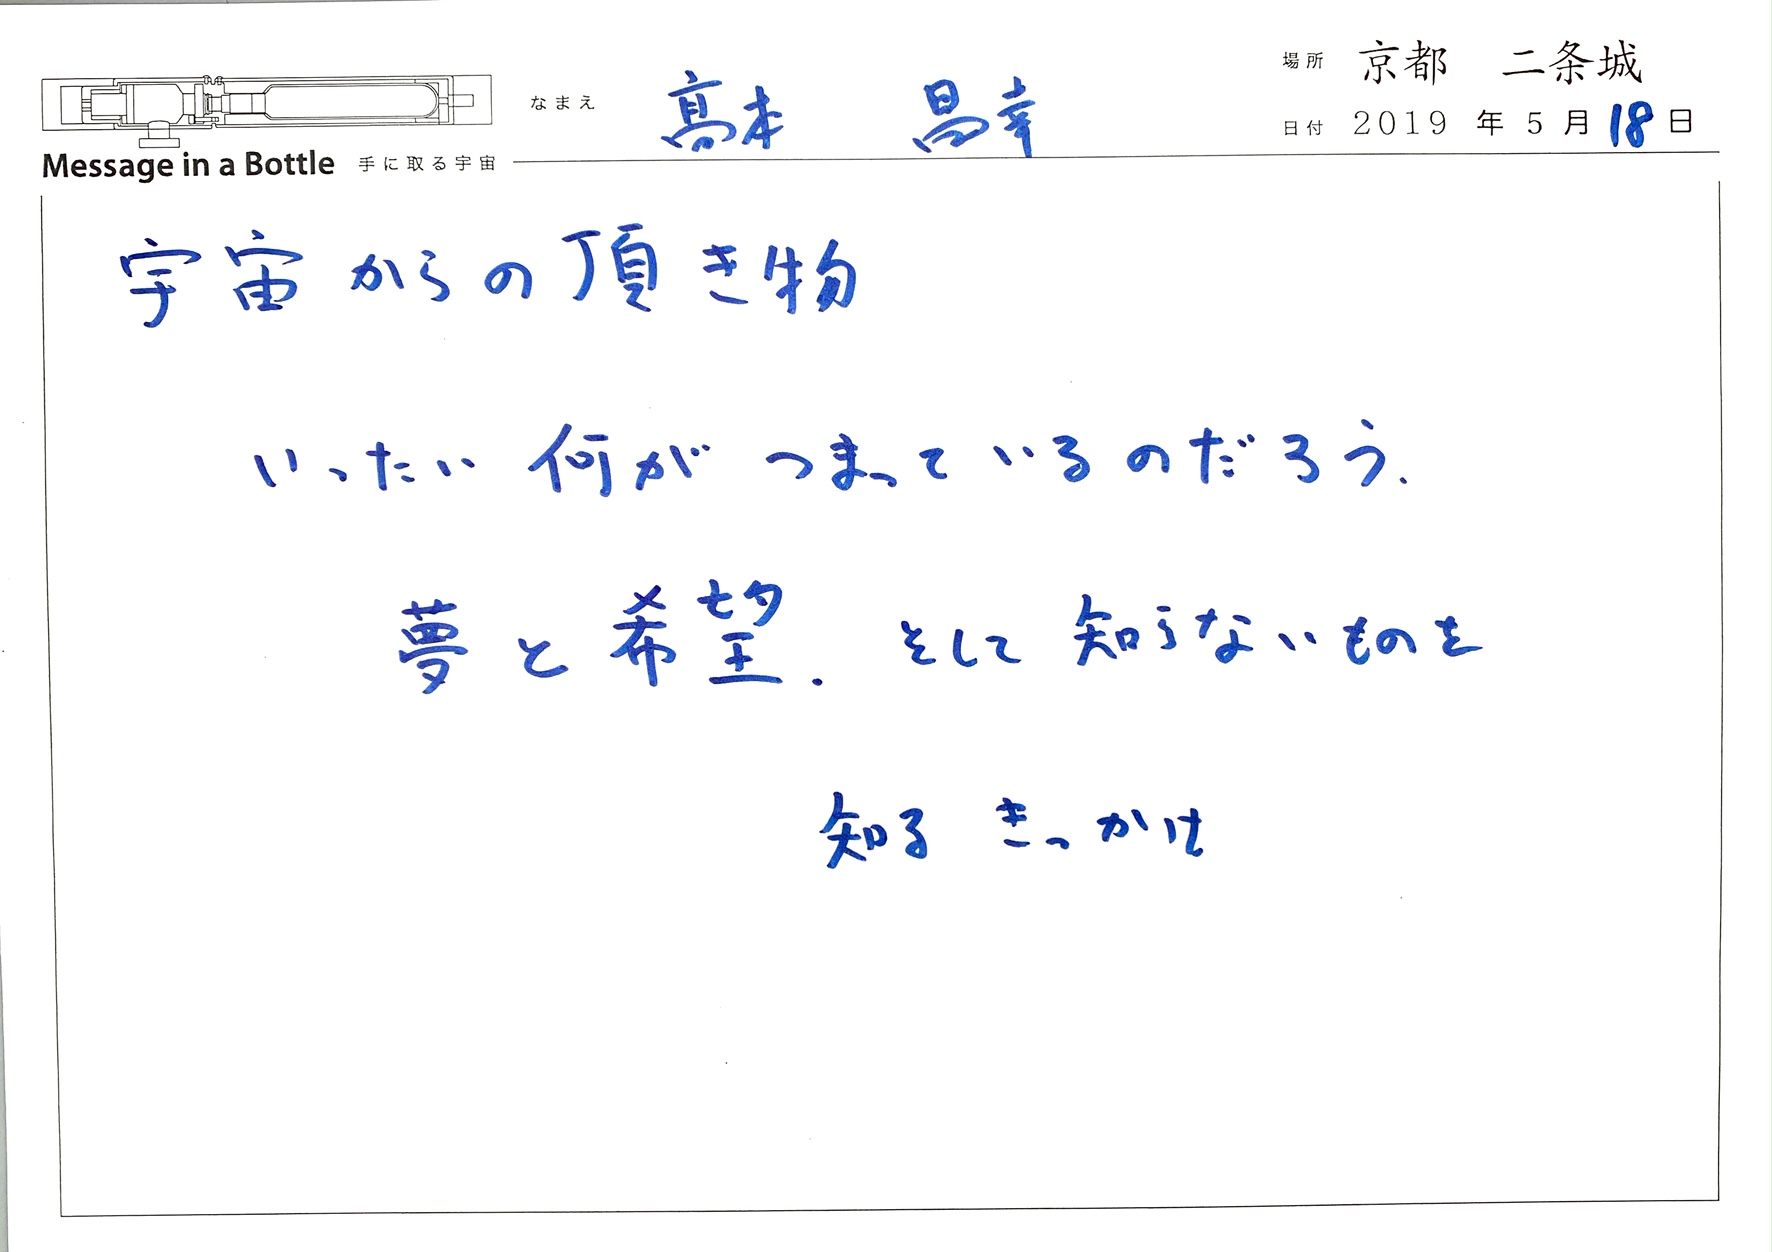 場所 京都 二条城
なまえ 髙本 昌幸
日付 2019 年 5 月 18 日
Message in a Bottle 手に取る宇宙
宇宙からの頂き物
いったい何がつまっているのだろう.
夢と希望. そして知らないものを
知るきっかけ